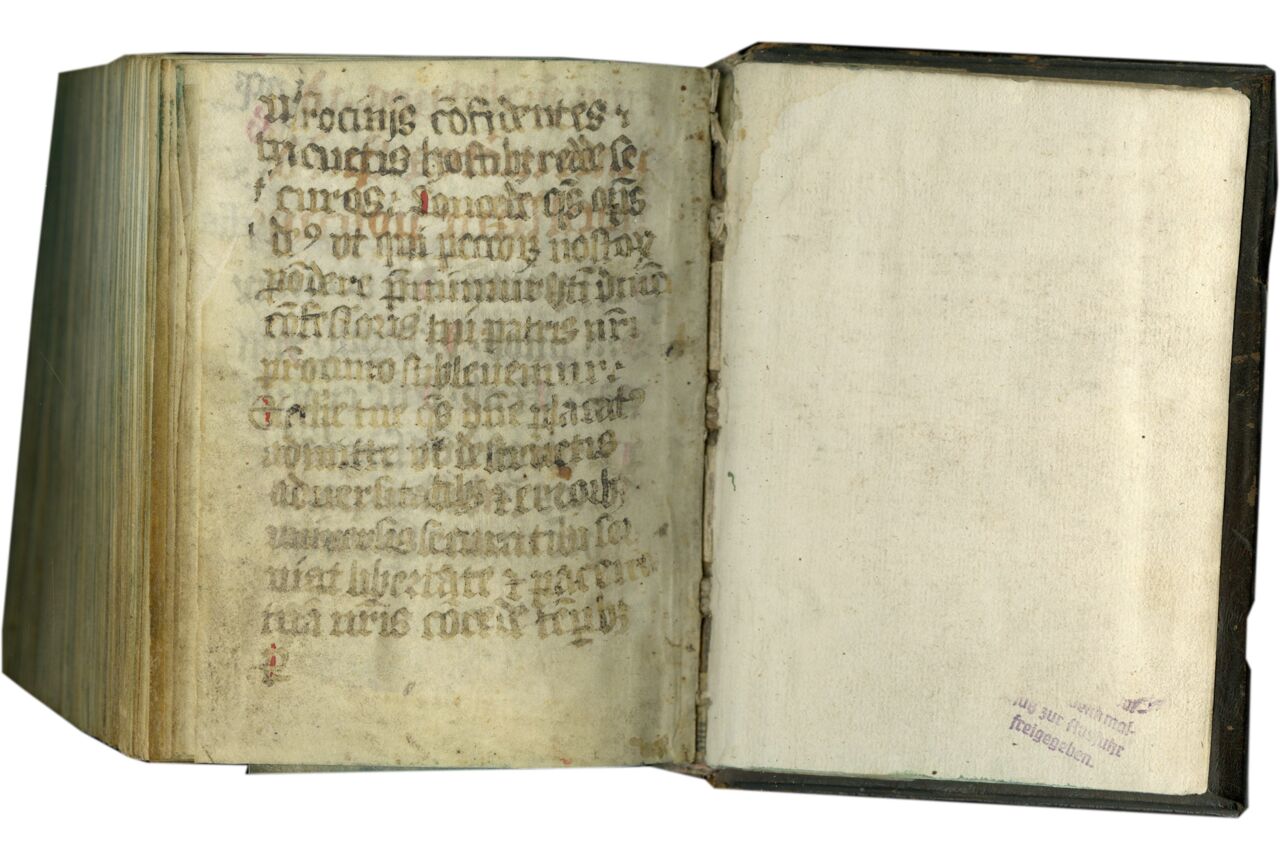 trocinijs cõfidentes ⁊
cūctis hostibꝫ redde se
curos. Concede q̃s om̃ps
dꝰ vt qui pctoꝝ nostroꝝ
põdere p̃mimur bti dnici
cõfessoris tui patris nr̃i
patrocinio subleuemur.
Eclie tue q̃s dñe placatꝰ
admitte vt destructis
aduersitatibꝫ ⁊ erroribꝫ
vniuersis secura tibi ser
uiat libertate ⁊ pacem
tuā nr̃is cõcede tẽꝑibꝫ
P
denkmal-
zur Ausfuhr
freigegeben.